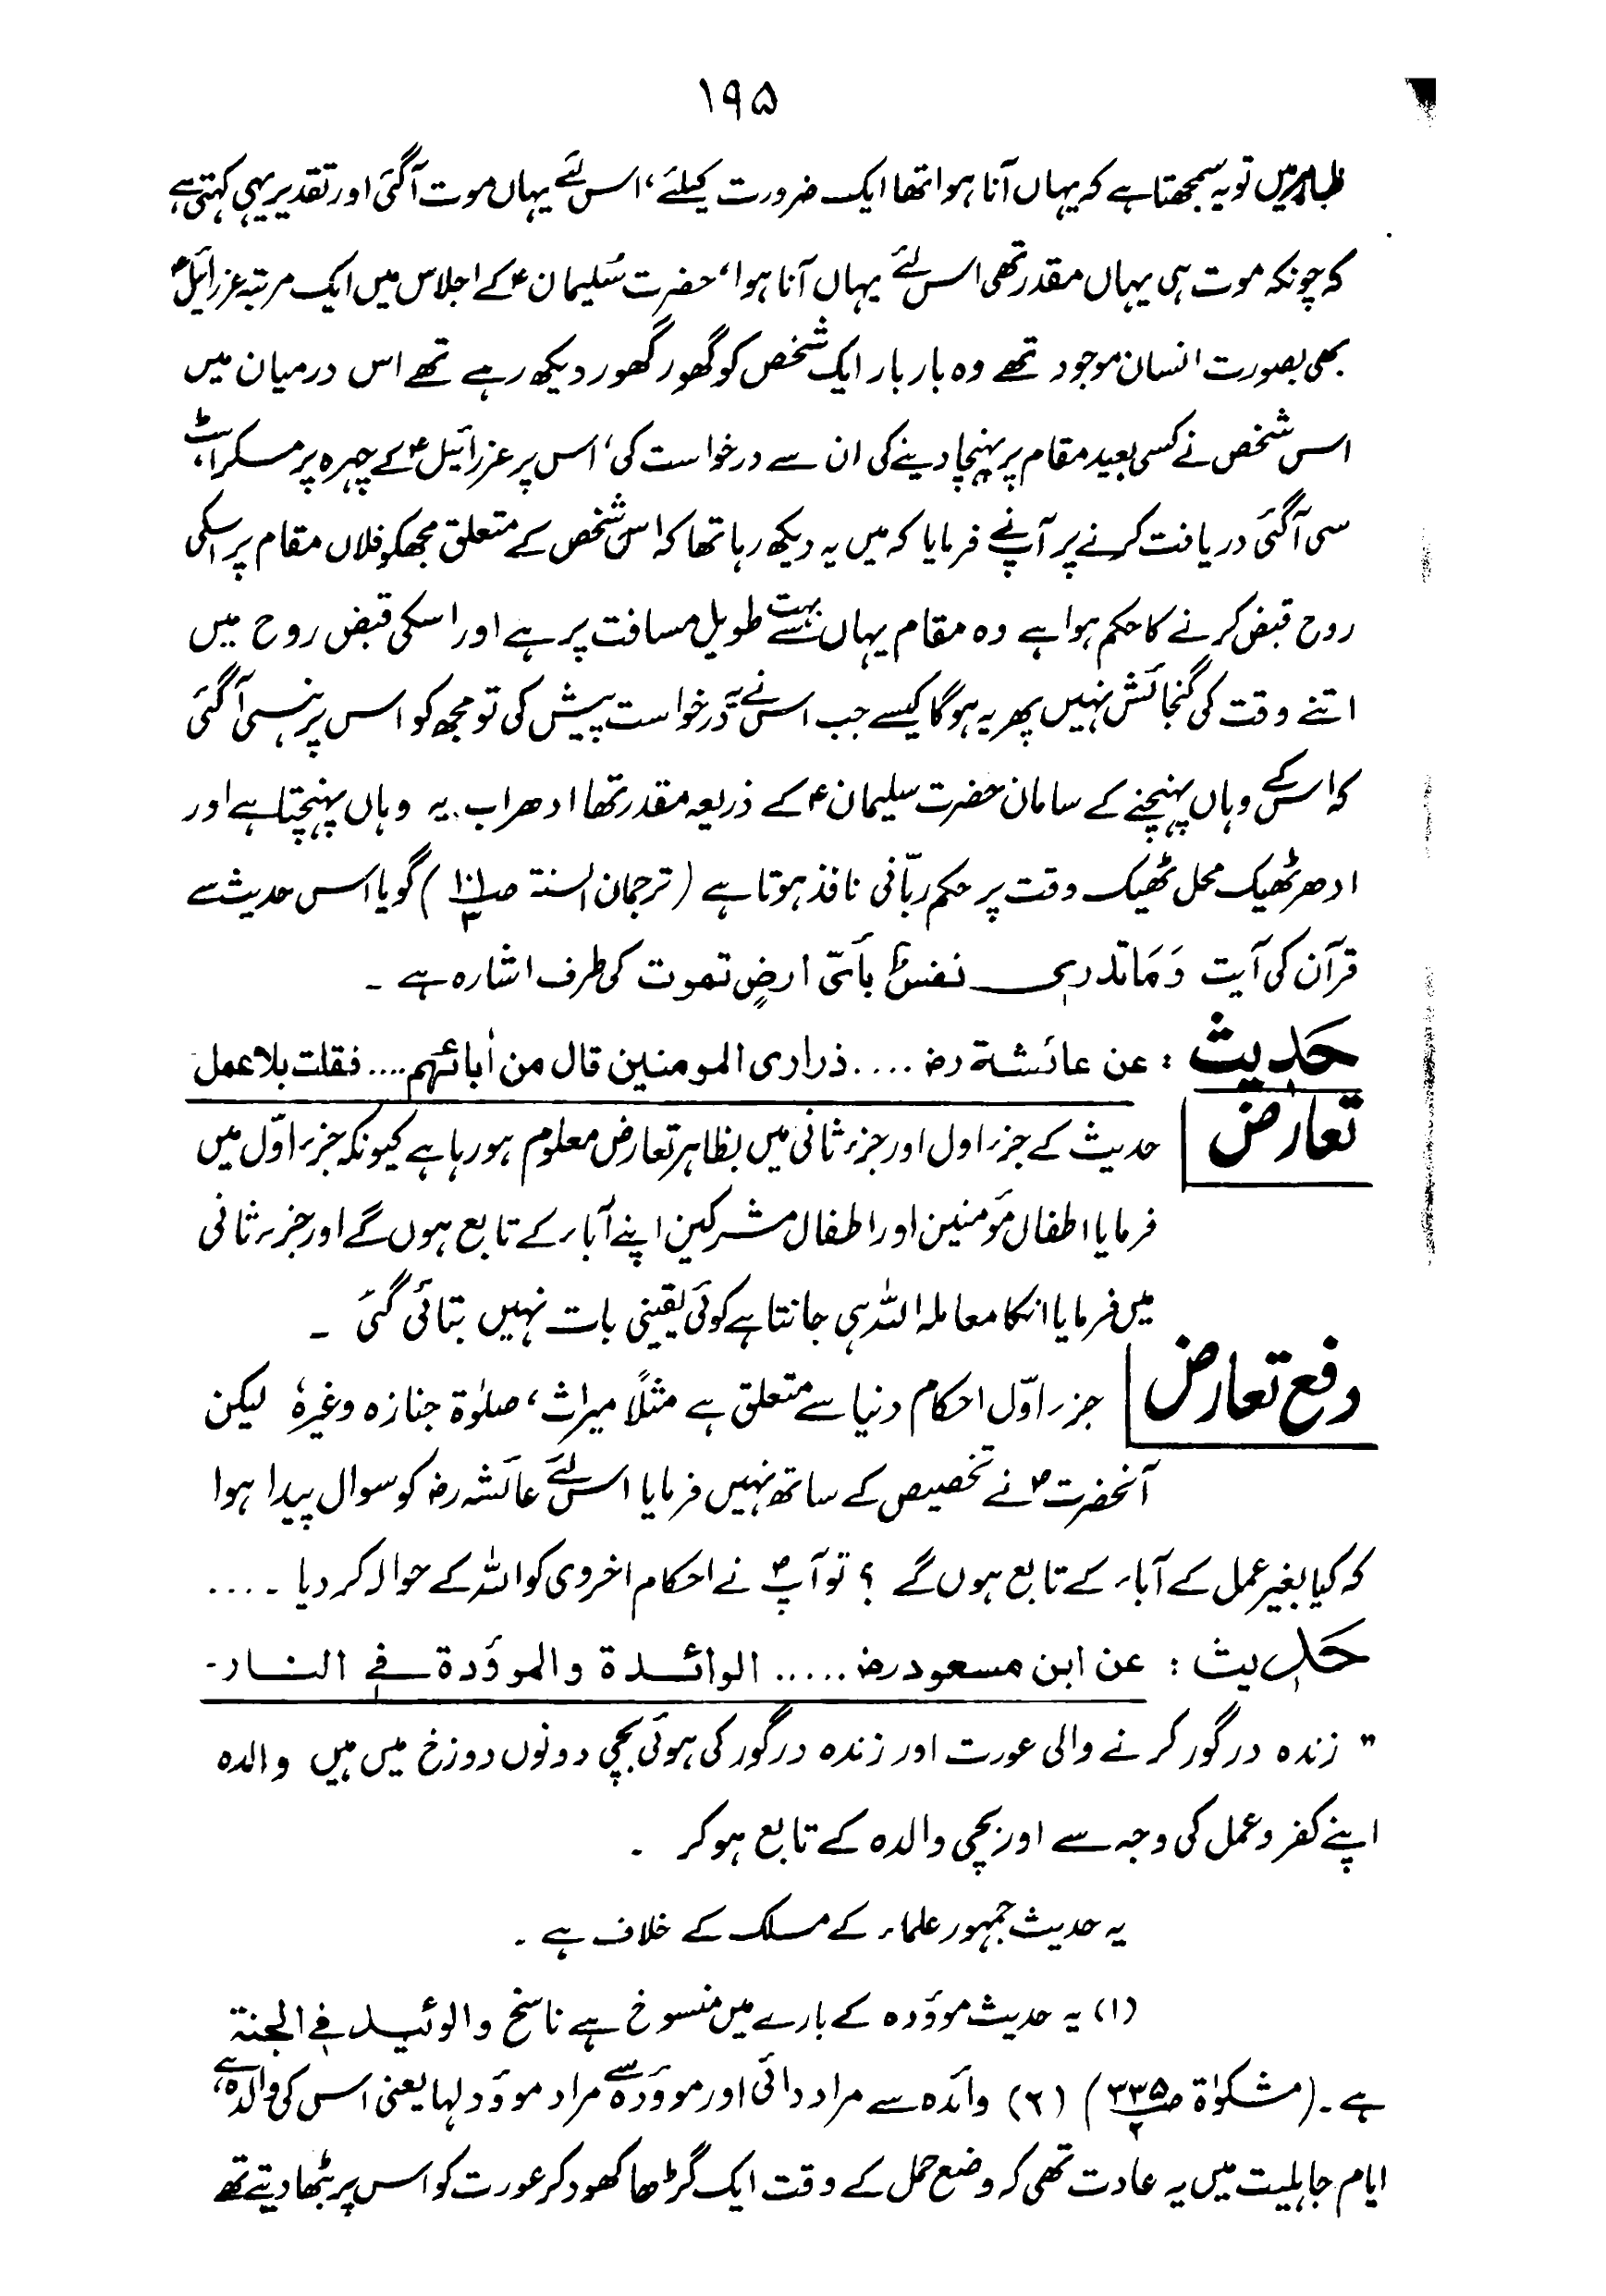 ۱۹۵
ظاہر میں تو یہ سمجھتا ہے کہ یہاں آنا ہوا تھا ایک ضرورت کیلئے، اس لئے یہاں موت آگئی اور تقدیر یہی کہتی ہے
کہ چونکہ موت ہی یہاں مقدر تھی اس لئے یہاں آنا ہوا، حضرت سُلیمان ؑ کے اجلاس میں ایک مرتبہ عزرائیل ؑ
بھی بصورت انسان موجود تھے وہ بار بار ایک شخص کو گھور گھور دیکھ رہے تھے اس درمیان میں
اس شخص نے کسی بعید مقام پر پہنچا دینے کی ان سے درخواست کی، اس پر عزرائیل ؑ کے چہرہ پر مسکراہٹ
سی آگئی دریافت کرنے پر آپنے فرمایا کہ میں یہ دیکھ رہا تھا کہ اس شخص کے متعلق مجھکو فلاں مقام پر اسکی
روح قبض کرنے کا حکم ہوا ہے وہ مقام یہاں سے بہت طویل مسافت پر ہے اور اسکی قبض روح میں
اتنے وقت کی گنجائش نہیں پھر یہ ہوگا کیسے جب اس نے یہ درخواست پیش کی تو مجھ کو اس پر ہنسی آگئی
کہ اس کے وہاں پہنچنے کے سامان حضرت سلیمان ؑ کے ذریعہ مقدر تھا ادھر اب یہ وہاں پہنچتا ہے اور
ادھر ٹھیک محل ٹھیک وقت پر حکم ربّانی نافذ ہوتا ہے (ترجمان السنۃ صـ۱۰۱ ۳) گویا اس حدیث سے
قرآن کی آیت وَمَا تدری نفسٌ بأیّ ارضٍ تموت کی طرف اشارہ ہے ۔
حَدیث : عن عائشۃ رض .... ذراری المومنین قال من اٰبائھم .... فقلت بلا عمل
تعارض | حدیث کے جزء اول اور جزء ثانی میں بظاہر تعارض معلوم ہو رہا ہے کیونکہ جزء اوّل میں
فرمایا اطفال مؤمنین اور اطفال مشرکین اپنے آباء کے تابع ہوں گے اور جزء ثانی
میں فرمایا انکا معاملہ اللہ ہی جانتا ہے کوئی یقینی بات نہیں بتائی گئی ۔
دفع تعارض | جزء اوّل احکام دنیا سے متعلق ہے مثلاً میراث، صلوٰۃ جنازہ وغیرہٗ لیکن
آنحضرت ؐ نے تخصیص کے ساتھ نہیں فرمایا اس لئے عائشہ رض کو سوال پیدا ہوا
کہ کیا بغیر عمل کے آباء کے تابع ہوں گے ؟ تو آپ ؐ نے احکام اخروی کو اللہ کے حوالہ کر دیا ۔ ...
حَدیث : عن ابن مسعود رض ..... الوائدۃ والموؤدۃ فی النار ۔
" زندہ درگور کرنے والی عورت اور زندہ درگور کی ہوئی بچی دونوں دوزخ میں ہیں والدہ
اپنے کفر وعمل کی وجہ سے اور بچی والدہ کے تابع ہوکر ۔
یہ حدیث جمہور علماء کے مسلک کے خلاف ہے ۔
(۱) یہ حدیث موؤدہ کے بارے میں منسوخ ہے ناسخ والوئید فی الجنۃ
ہے ۔ (مشکوٰۃ صـ۳۳۵ ۲) (۲) وائدہ سے مراد دائی اور موؤدہ سے مراد موؤد لہا یعنی اس کی والدہ ہے،
ایام جاہلیت میں یہ عادت تھی کہ وضع حمل کے وقت ایک گڑھا کھود کر عورت کو اس پر بٹھا دیتے تھے